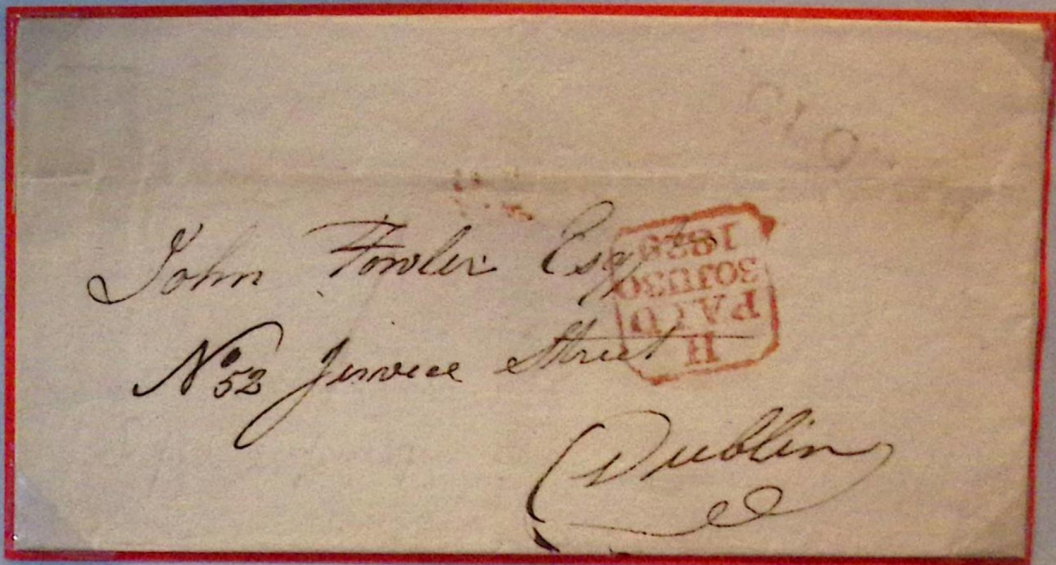 CLO
John Fowler Esqr
No 52 Jervice Street
Dublin
H
PAID
30JU30
1828